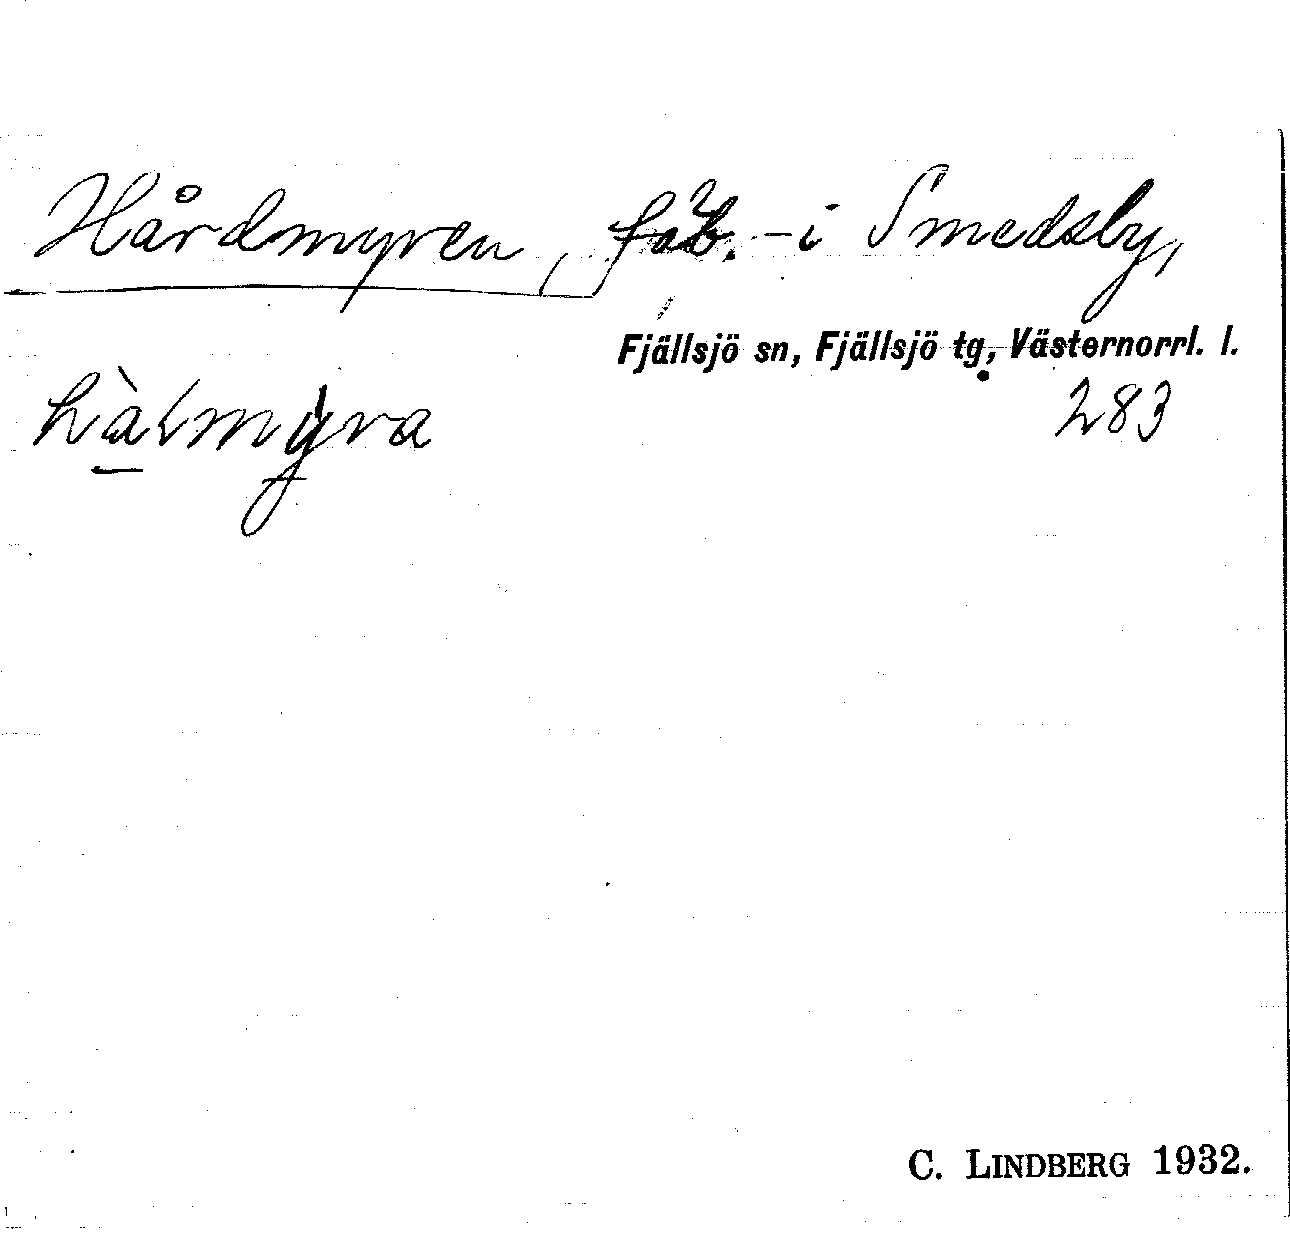 Hårdmyren, fäb. i Smedsby,
Fjällsjö sn, Fjällsjö tg, Västernorrl. l.
283
C. LINDBERG 1932.